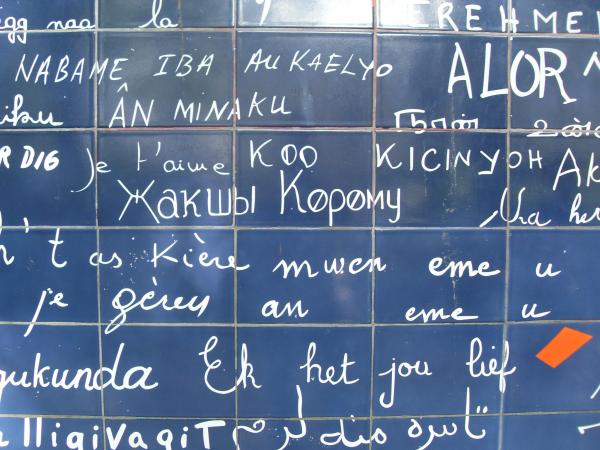 la EREHME
NABAME IBA AU KAELYO ALOR
ÂN MINAKU நான்
R DIG Je t'aime KOO KICINYOH AK
Жакшы Көрөму Na
t as kière mwen eme u
je gèrey an eme u
gukunda Ek het jou lief
lligivagit